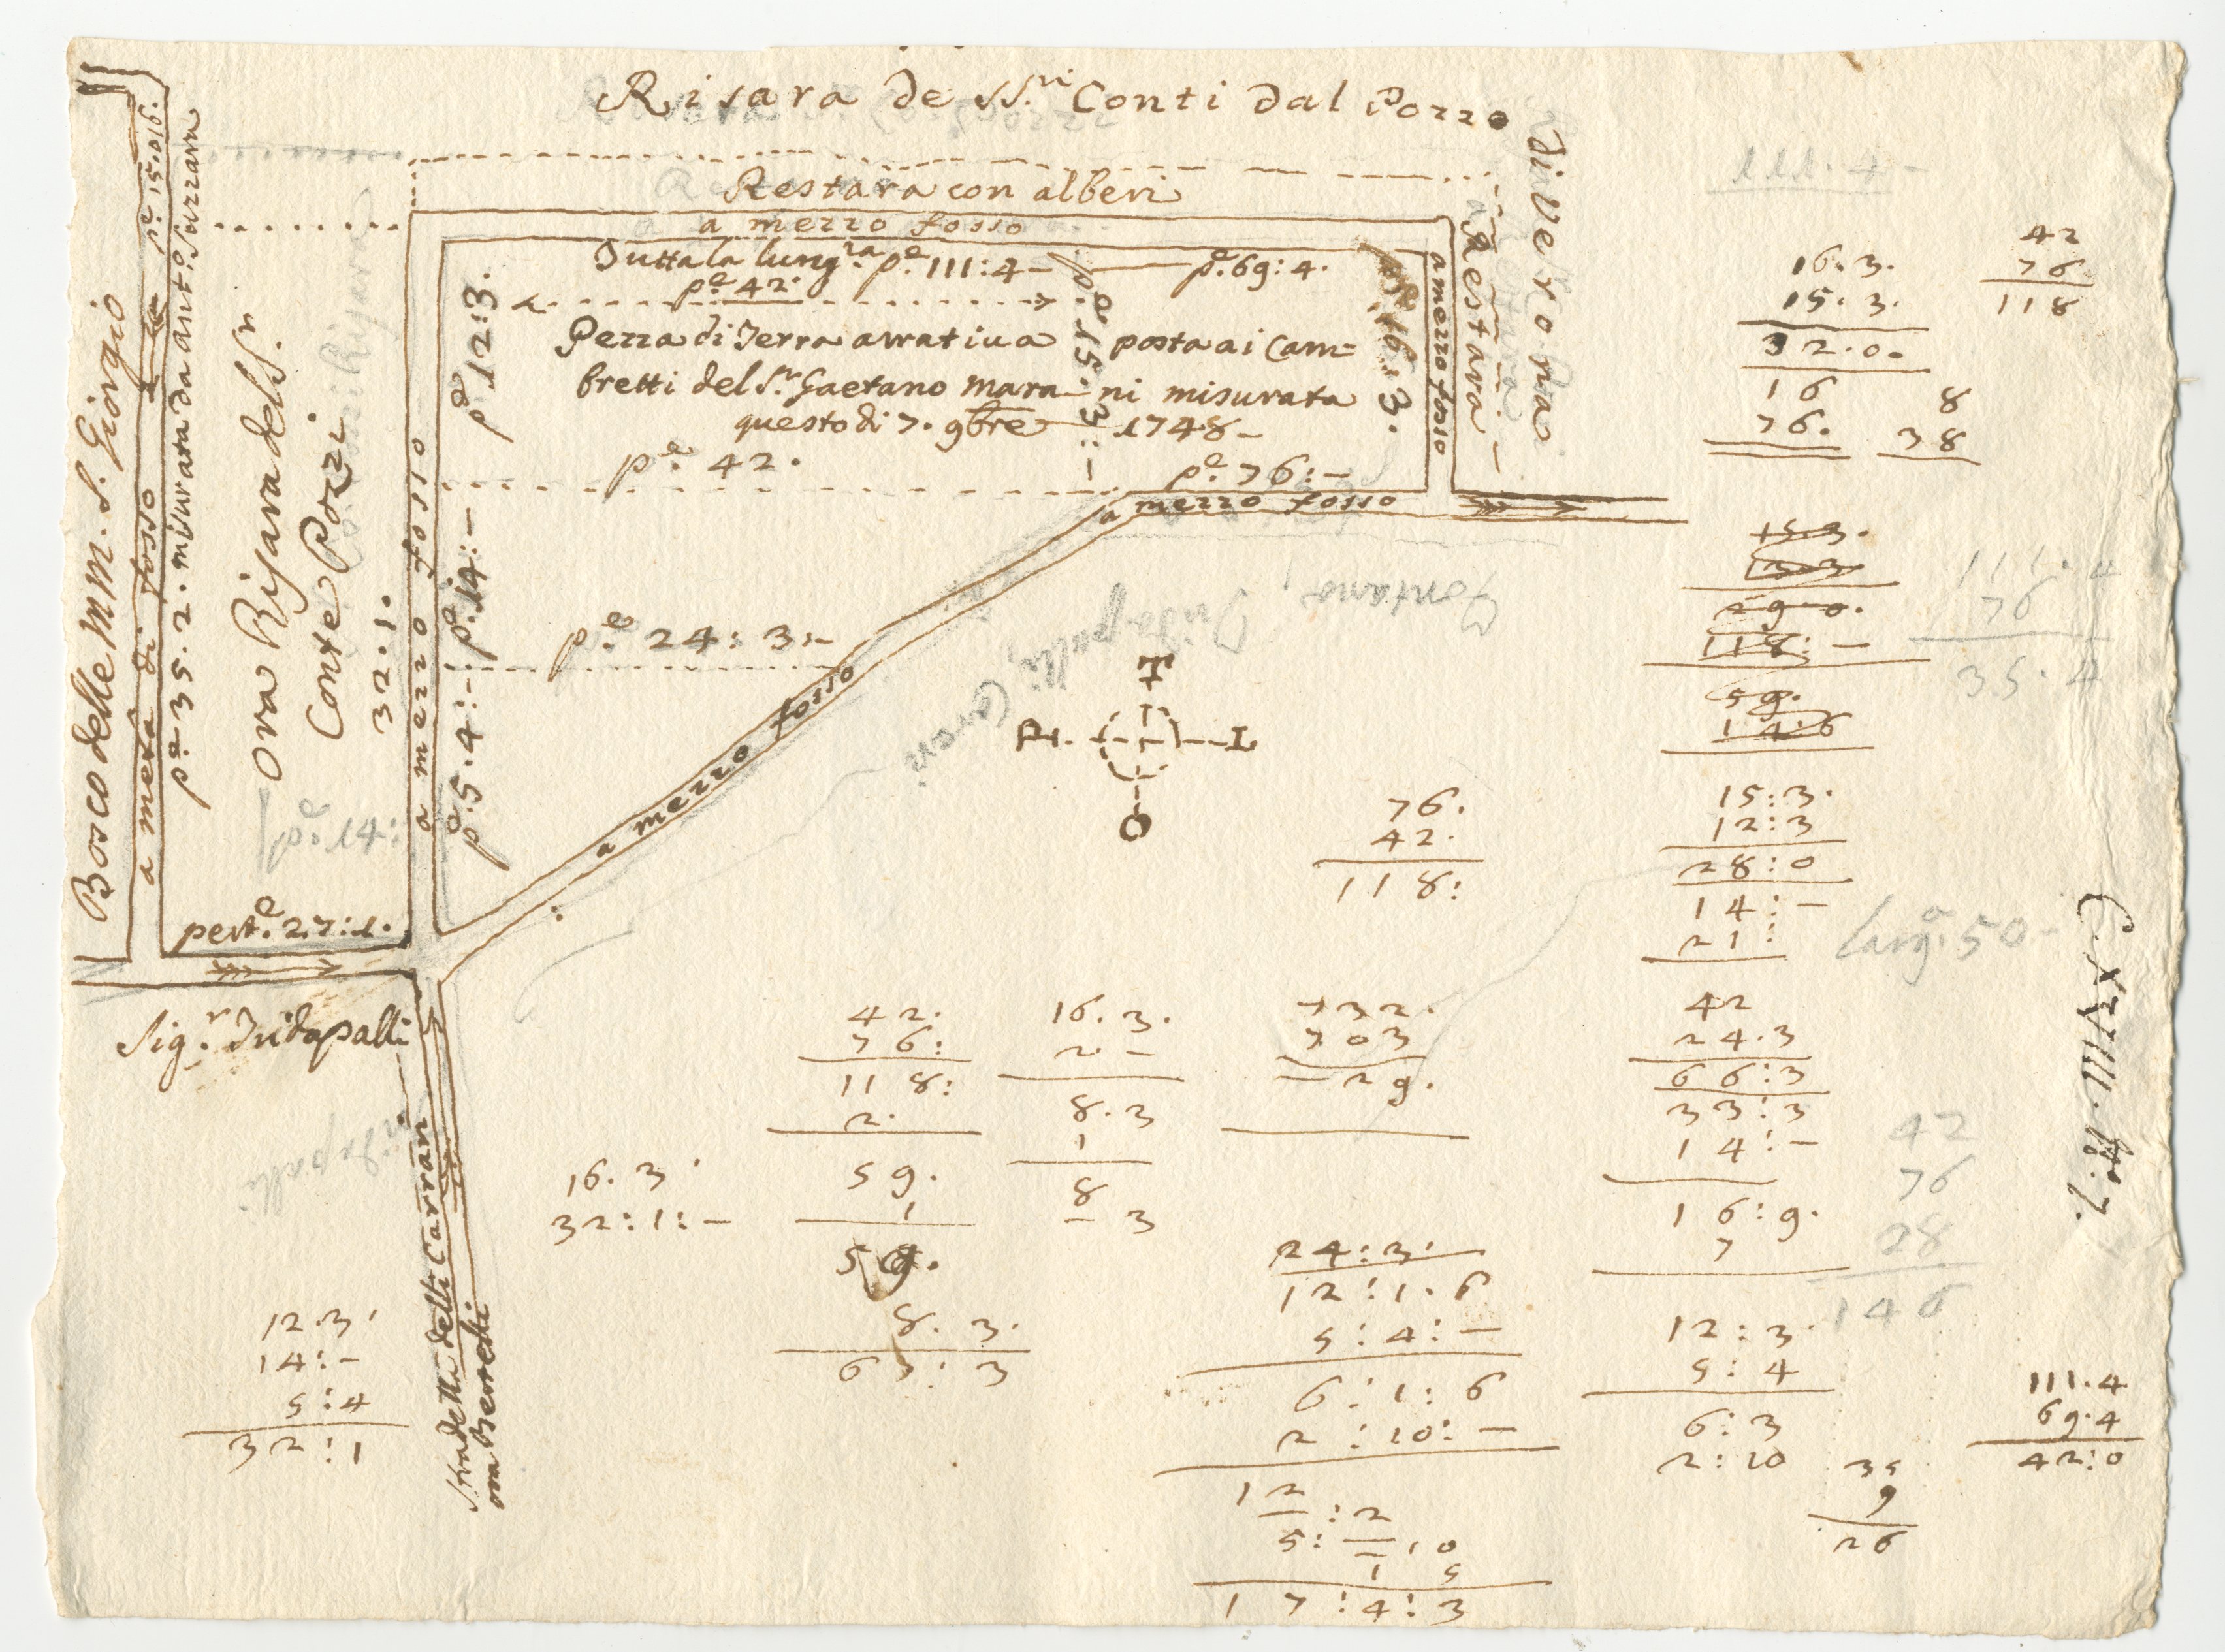 Risara de SS.ri Conti Dal Pozzo
di Verona
Restara con alberi
a mezzo fosso
Tutta la lung.za p.e 111:4-
p.e 69:4.
p.e 42.
Pezza di Terra arrativa posta ai Cam=
bretti del S.r Gaetano Mara ni misurata
questo di 7. 9bre 1748-
p.e 12:3.
p.e 15:3:-
p.e 16:3.
a mezzo fosso
Restara
p.e 42.
p.e 76:-
a mezzo fosso
p.e 14:-
p.e 24:3:-
p.e 5:4:-
a mezzo fosso
a mezzo fosso
Bosco delle M M. S. Giorgio
a metà di fosso
p.e 15:016.
p.e 35.2. misurata da ant.o
ora Risara del S.r
Conte Pozzi
32.1.
p.e 14:
pert.e 27:1.
Sig.r Tridapalli
Stradetta delli Carrari
ora Benedetti
Fontana, Tridapalli, Coreri
Tridapalli
T
L
O
C. XVIII. N.o 7.
Larg.a 50-
- 4.111
16.3.
15:3.
32.0.
16
76.
8
38
42
76
118
15.3.
29.0.
118:-
59.
14:6
111.4
76
35.4
15:3.
12:3
28:0
14:-
21:
76.
42.
118:
42
24.3
66:3
33:3
14:-
16:9.
7
42
76
28
146
42.
76:
118:
2.
59.
1
59.
8.3.
16.3.
2-
8.3
1
8
-3
732.
703
-29.
16.3
32:1:-
24:3:
12:1.6
5:4:-
6:1:6
2:10:-
12
:2
5:
10
1 5
17:4:3
12:3.
5:4
6:3
2:10
35
9
26
111.4
69.4
42:0
12.3
14:-
5:4
32:1